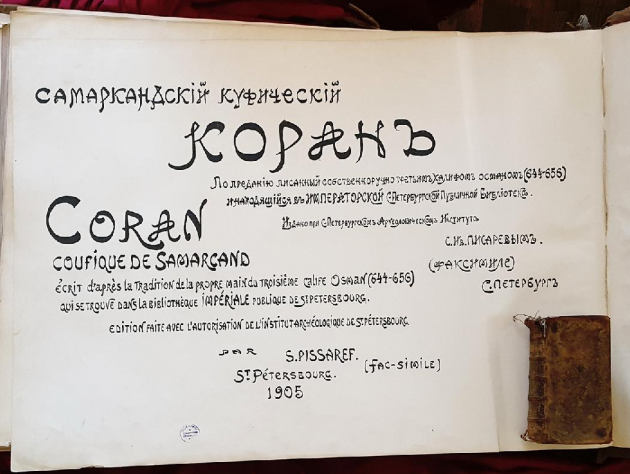 САМАРКАНДСКІЙ КУФИЧЕСКІЙ
КОРАНЪ
По преданію писанный собственноручно третьимъ Халифомъ Османомъ (644-656)
и находящійся въ ИМПЕРАТОРСКОЙ С.Петербургской Публичной Библіотекѣ.
Издано при С.Петербургскомъ Археологическомъ Институтѣ
С.Ив. ПИСАРЕВЫМЪ.
(ФАКСИМИЛЕ)
С.ПЕТЕРБУРГЪ
CORAN
COUFIQUE DE SAMARCAND
écrit d'après la tradition de la propre main du troisième calife Osman (644-656)
qui se trouve dans la bibliothèque IMPÉRIALE publique de St Petersbourg.
Edition faite avec l'autorisation de l'institut archéologique de St. Pétersbourg.
PAR S. PISSAREF.
(FAC-SIMILE)
St. Pétersbourg.
1905